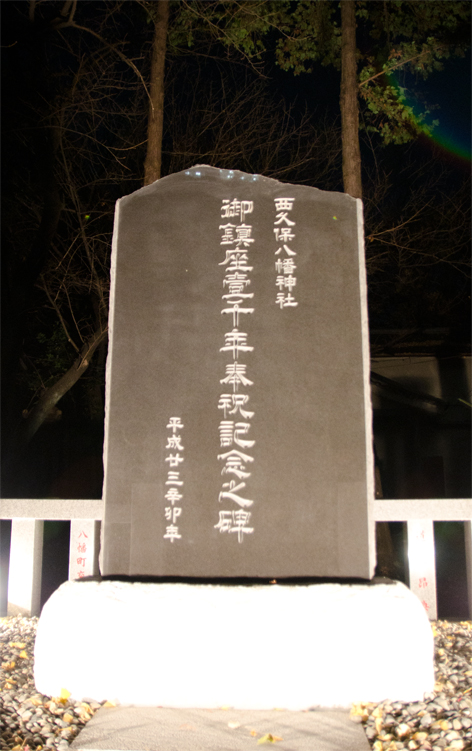 西久保八幡神社
御鎮座壹千年奉祝記念之碑
平成廿三辛卯年
八幡町